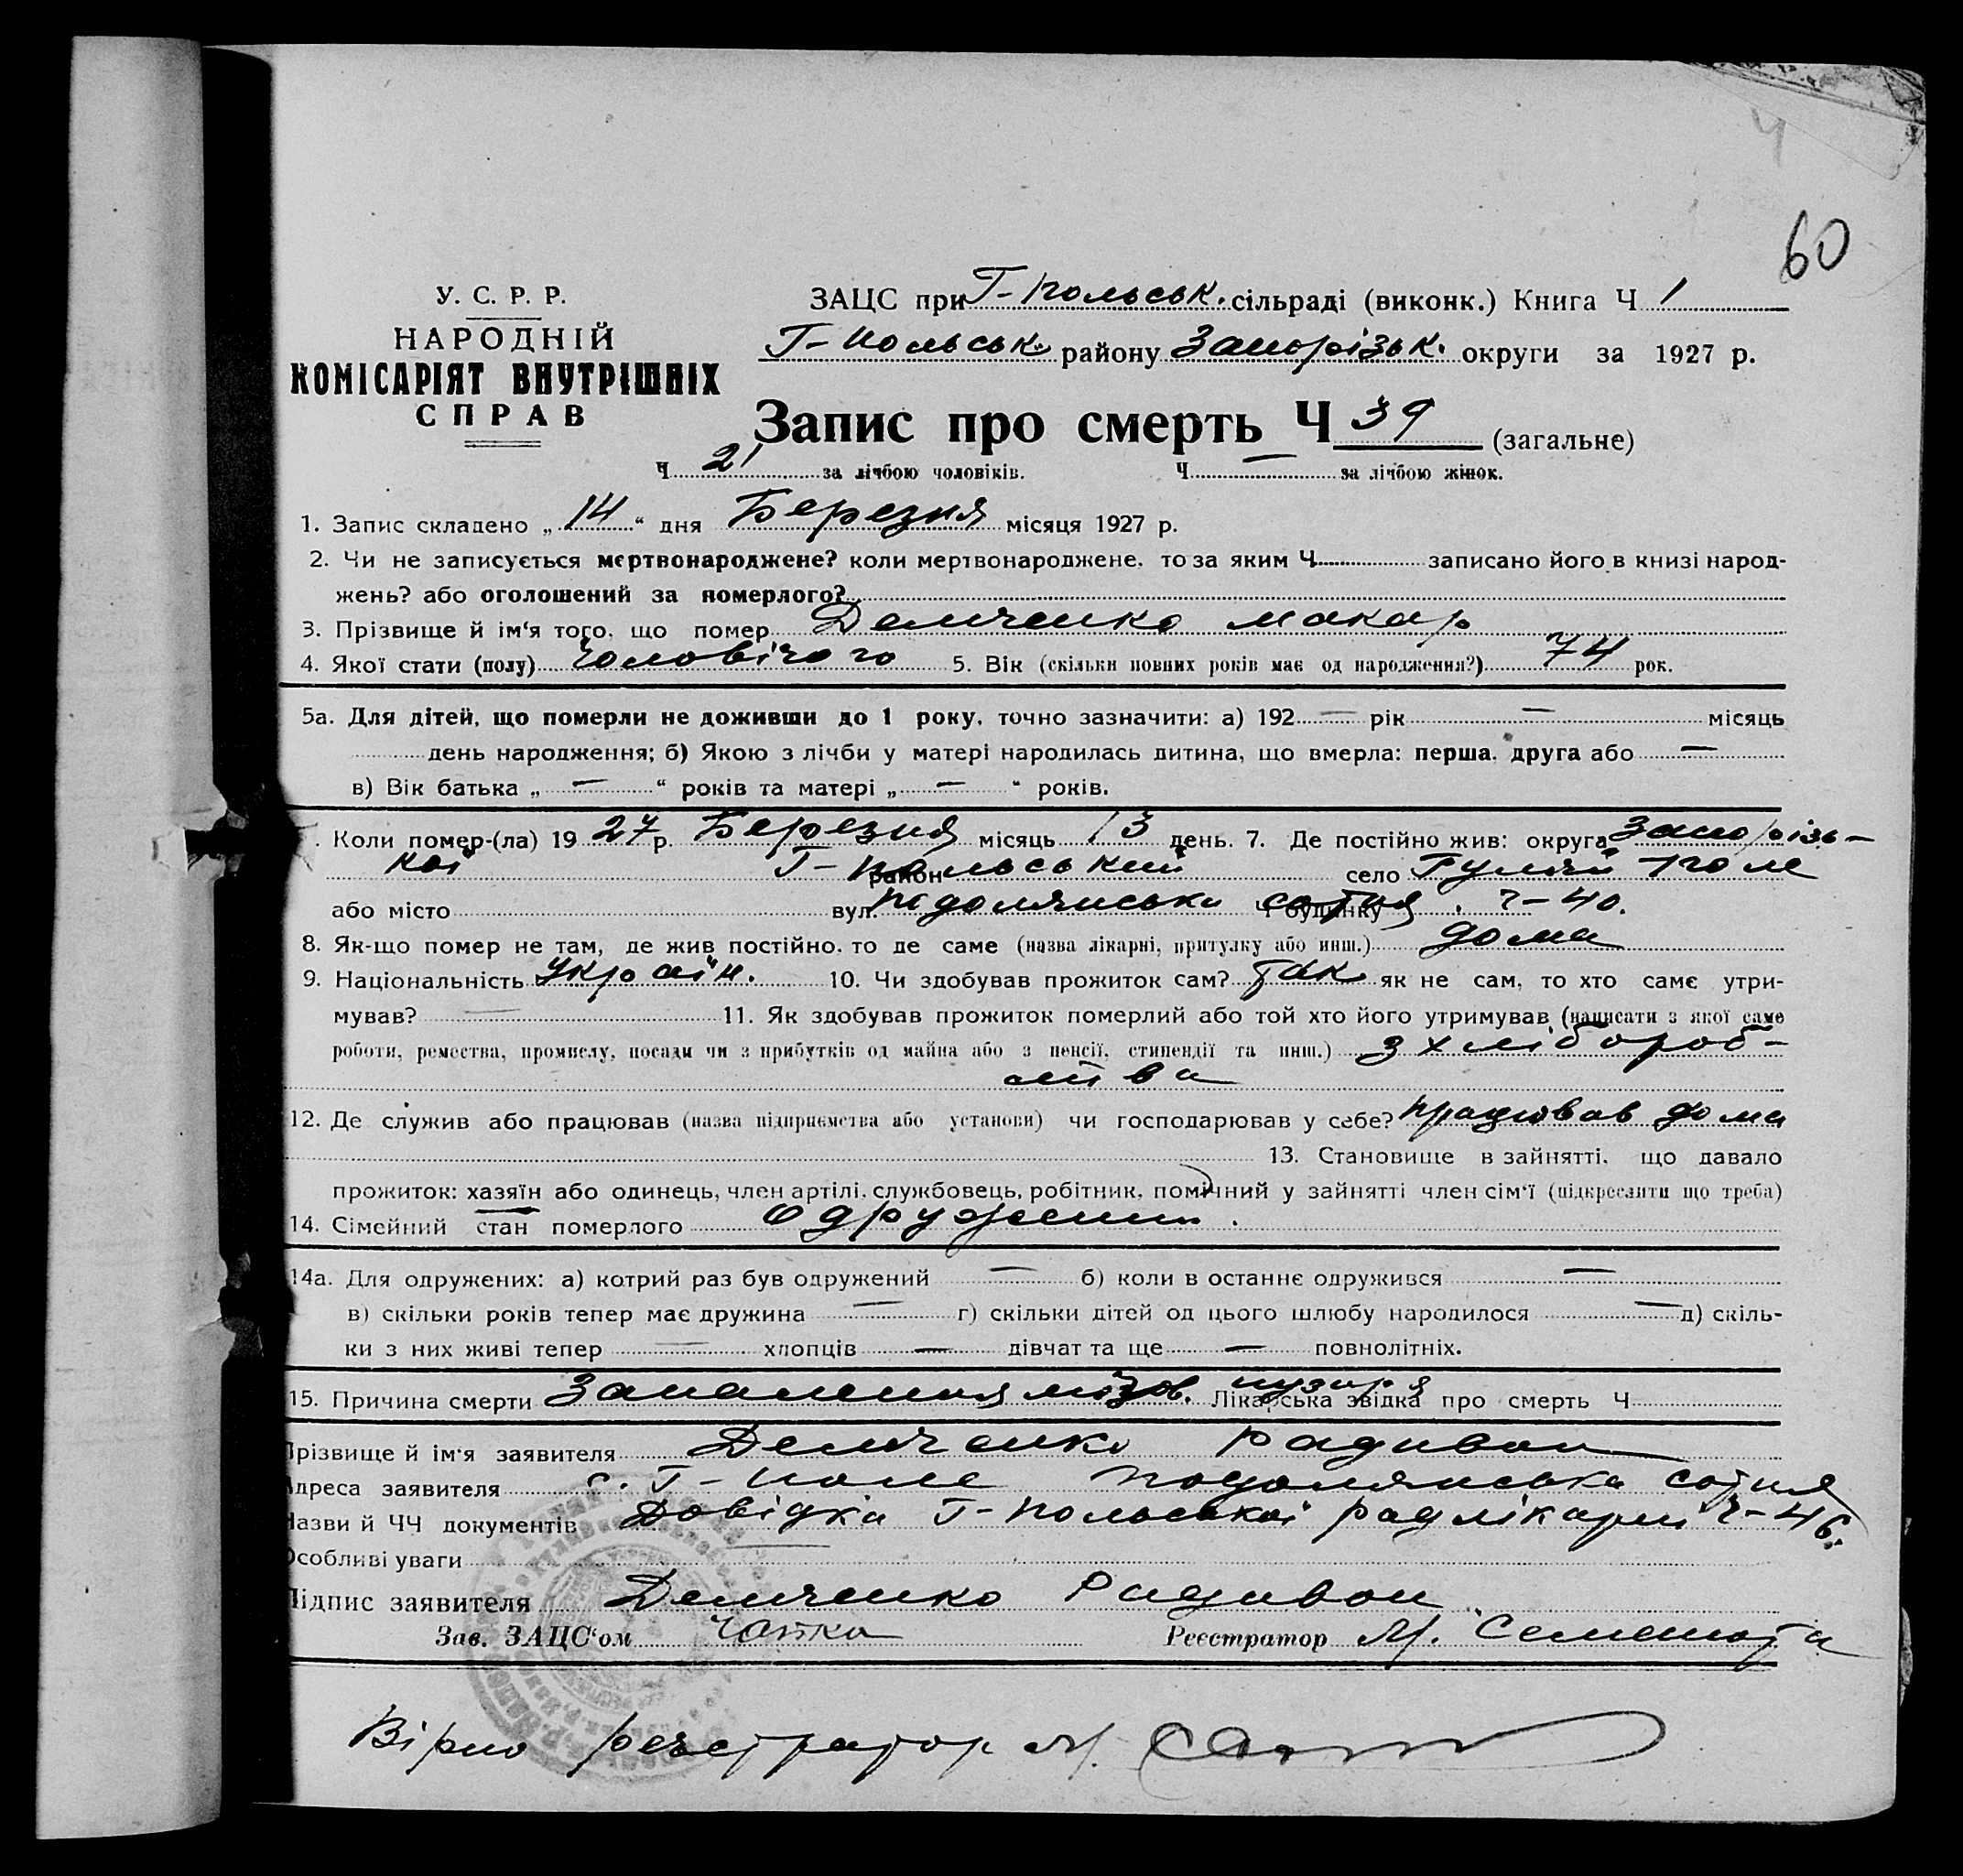 60
У. С. Р. Р.
НАРОДНІЙ
КОМІСАРІЯТ ВНУТРІШНІХ
СПРАВ
ЗАЦС при Г-польськ. сільраді (виконк.) Книга Ч 1
Г-польськ. району Запорізьк. округи за 1927 р.
Запис про смерть Ч 39 (загальне)
Ч 21 за лічбою чоловіків. Ч — за лічбою жінок.
1. Запис складено „ 14 “ дня Березня місяця 1927 р.
2. Чи не записується мертвонароджене? коли мертвонароджене, то за яким Ч записано його в книзі народ-
жень? або оголошений за померлого?
3. Прізвище й ім‘я того, що помер Демченко Макар
4. Якої стати (полу) Чоловічого 5. Вік (скільки повних років має од народження?) 74 рок.
5а. Для дітей, що померли не доживши до 1 року, точно зазначити: а) 192 — рік — місяць
день народження; б) Якою з лічби у матері народилась дитина, що вмерла: перша, друга або —
в) Вік батька „ — “ років та матері „ — “ років.
Коли помер-(ла) 19 27 р. Березня місяць 13 день. 7. Де постійно жив: округа Запорізь-
кої Г-польський район село Гуляй поле
або місто вул. підолянська сотня Ч будинку ч-40.
8. Як-що помер не там, де жив постійно, то де саме (назва лікарні, притулку або инш.) дома
9. Національність Україн. 10. Чи здобував прожиток сам? так як не сам, то хто саме утри-
мував? — 11. Як здобував прожиток померлий або той хто його утримував (написати з якої саме
роботи, ремества, промислу, посади чи з прибутків од майна або з пенсії, стипендії та инш.) з хлібороб-
ства
12. Де служив або працював (назва підприємства або установи) чи господарював у себе? працював дома
13. Становище в зайнятті, що давало
прожиток: хазяїн або одинець, член артілі, службовець, робітник, помічний у зайнятті член сім‘ї (підкреслити що треба)
14. Сімейний стан померлого Одружений.
14а. Для одружених: а) котрий раз був одружений — б) коли в останнє одружився —
в) скільки років тепер має дружина — г) скільки дітей од цього шлюбу народилося — д) скіль-
ки з них живі тепер — хлопців — дівчат та ще — повнолітніх.
15. Причина смерти Запалення пузиря Лікарська звідка про смерть Ч
Прізвище й ім‘я заявителя Демченко Радивон
Адреса заявителя с. Г-поле подолянська сотня
Назви й ЧЧ документів Довідка Г-польської радлікарні ч-46.
Особливі уваги
Підпис заявителя Демченко Радивон
Зав. ЗАЦС‘ом Реєстратор М.
Вірно реєстратор М.